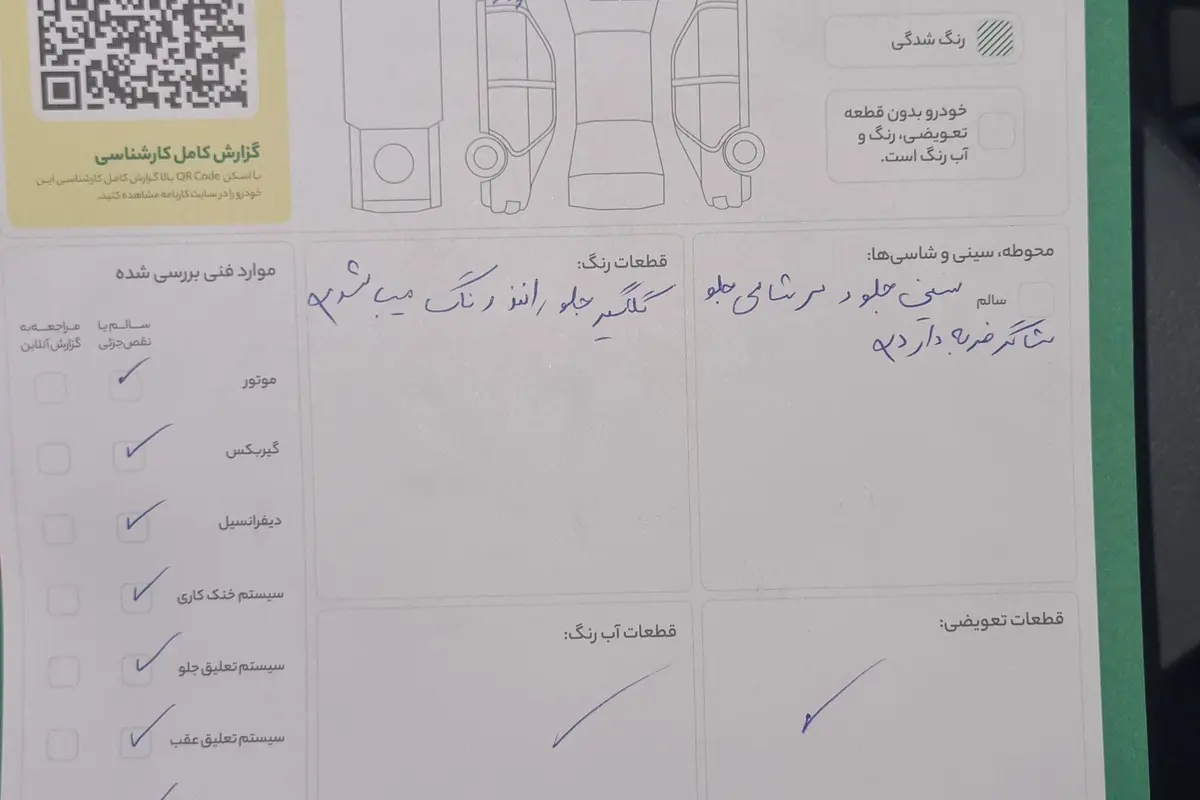 رنگ شدگی
خودرو بدون قطعه
تعویضی، رنگ و
آب رنگ است.
گزارش کامل کارشناسی
با اسکن QR Code بالا گزارش کامل کارشناسی این
خودرو را در سایت کارنامه مشاهده کنید.
محوطه، سینی و شاسی‌ها:
سالم
سینی جلو و سر شاسی جلو
شاگرد ضربه دارد
قطعات رنگ:
گلگیر جلو راننده رنگ میباشد
موارد فنی بررسی شده
سالم یا
نقص جزئی
مراجعه به
گزارش آنلاین
موتور
گیربکس
دیفرانسیل
سیستم خنک کاری
سیستم تعلیق جلو
سیستم تعلیق عقب
قطعات تعویضی:
قطعات آب رنگ: